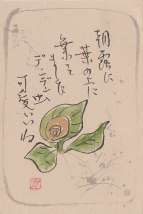 朝露に
葉の上に
乗って
ました
デンデン虫
可愛いいね